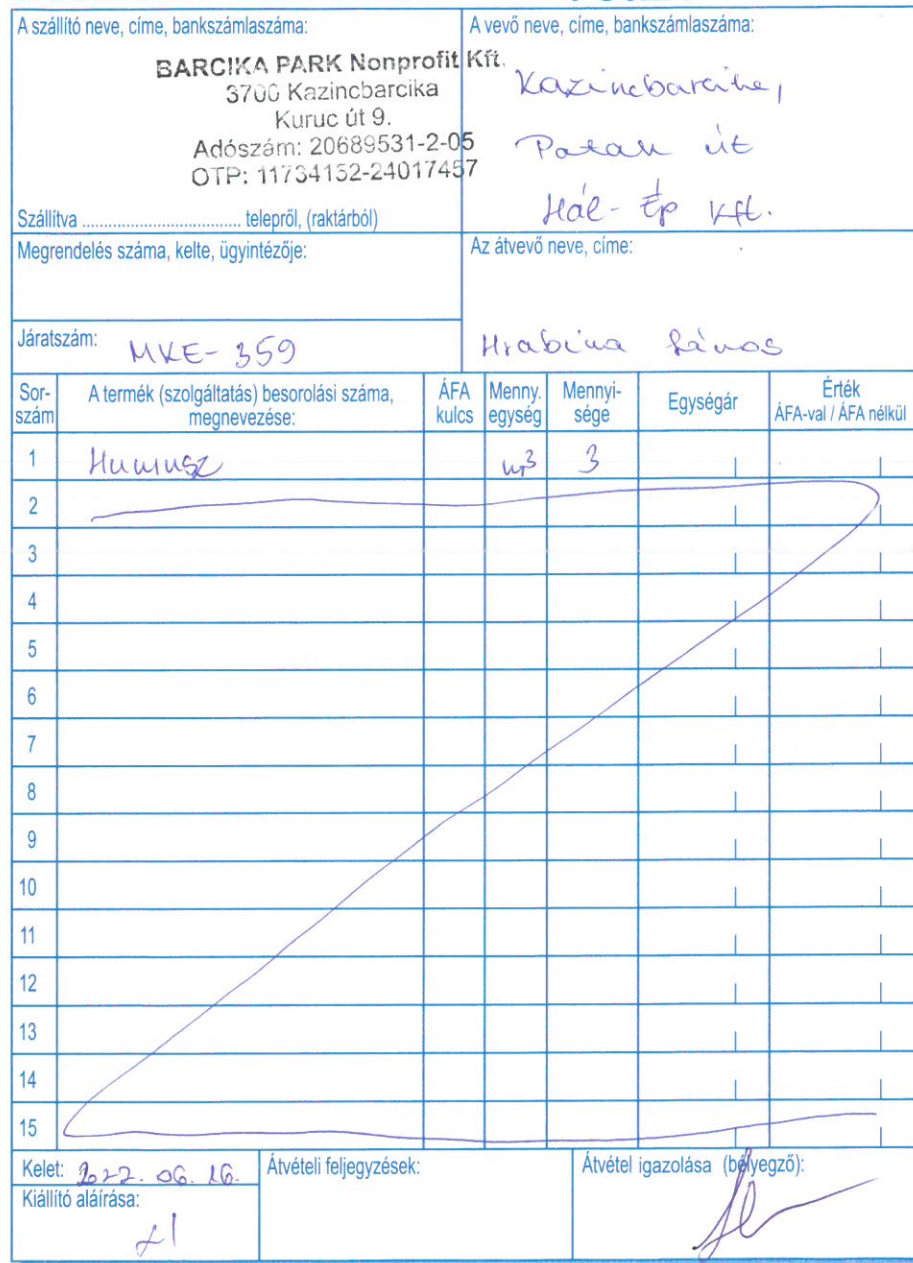 A szállító neve, címe, bankszámlaszáma:
BARCIKA PARK Nonprofit Kft.
3700 Kazincbarcika
Kuruc út 9.
Adószám: 20689531-2-05
OTP: 11734152-24017457
Szállítva .................................... telepről, (raktárból)
A vevő neve, címe, bankszámlaszáma:
Kazincbarcika,
Patak út
Hál-Ép Kft.
Megrendelés száma, kelte, ügyintézője:
Az átvevő neve, címe:
Járatszám: MKE-359
Hrabina János
Sor-szám A termék (szolgáltatás) besorolási száma, megnevezése: ÁFA kulcs Menny. egység Mennyi-sége Egységár Érték ÁFA-val / ÁFA nélkül
1 Humusz m3 3
2
3
4
5
6
7
8
9
10
11
12
13
14
15
Kelet: 2022. 06. 16.
Átvételi feljegyzések:
Átvétel igazolása (bélyegző):
Kiállító aláírása: